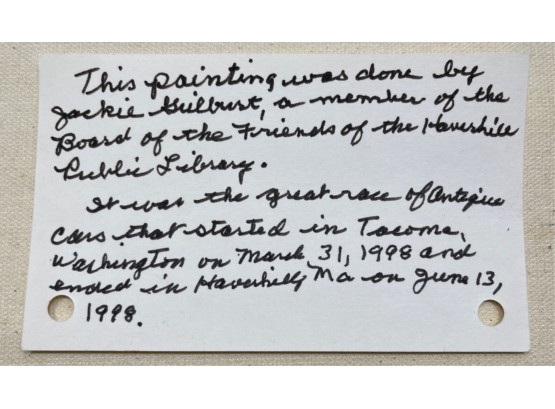 This painting was done by
Jackie Gilbert, a member of the
Board of the Friends of the Haverhill
Public Library.
It was the great race of Antique
Cars that started in Tacoma,
Washington on March 31, 1998 and
ended in Haverhill, Ma on June 13,
1998.